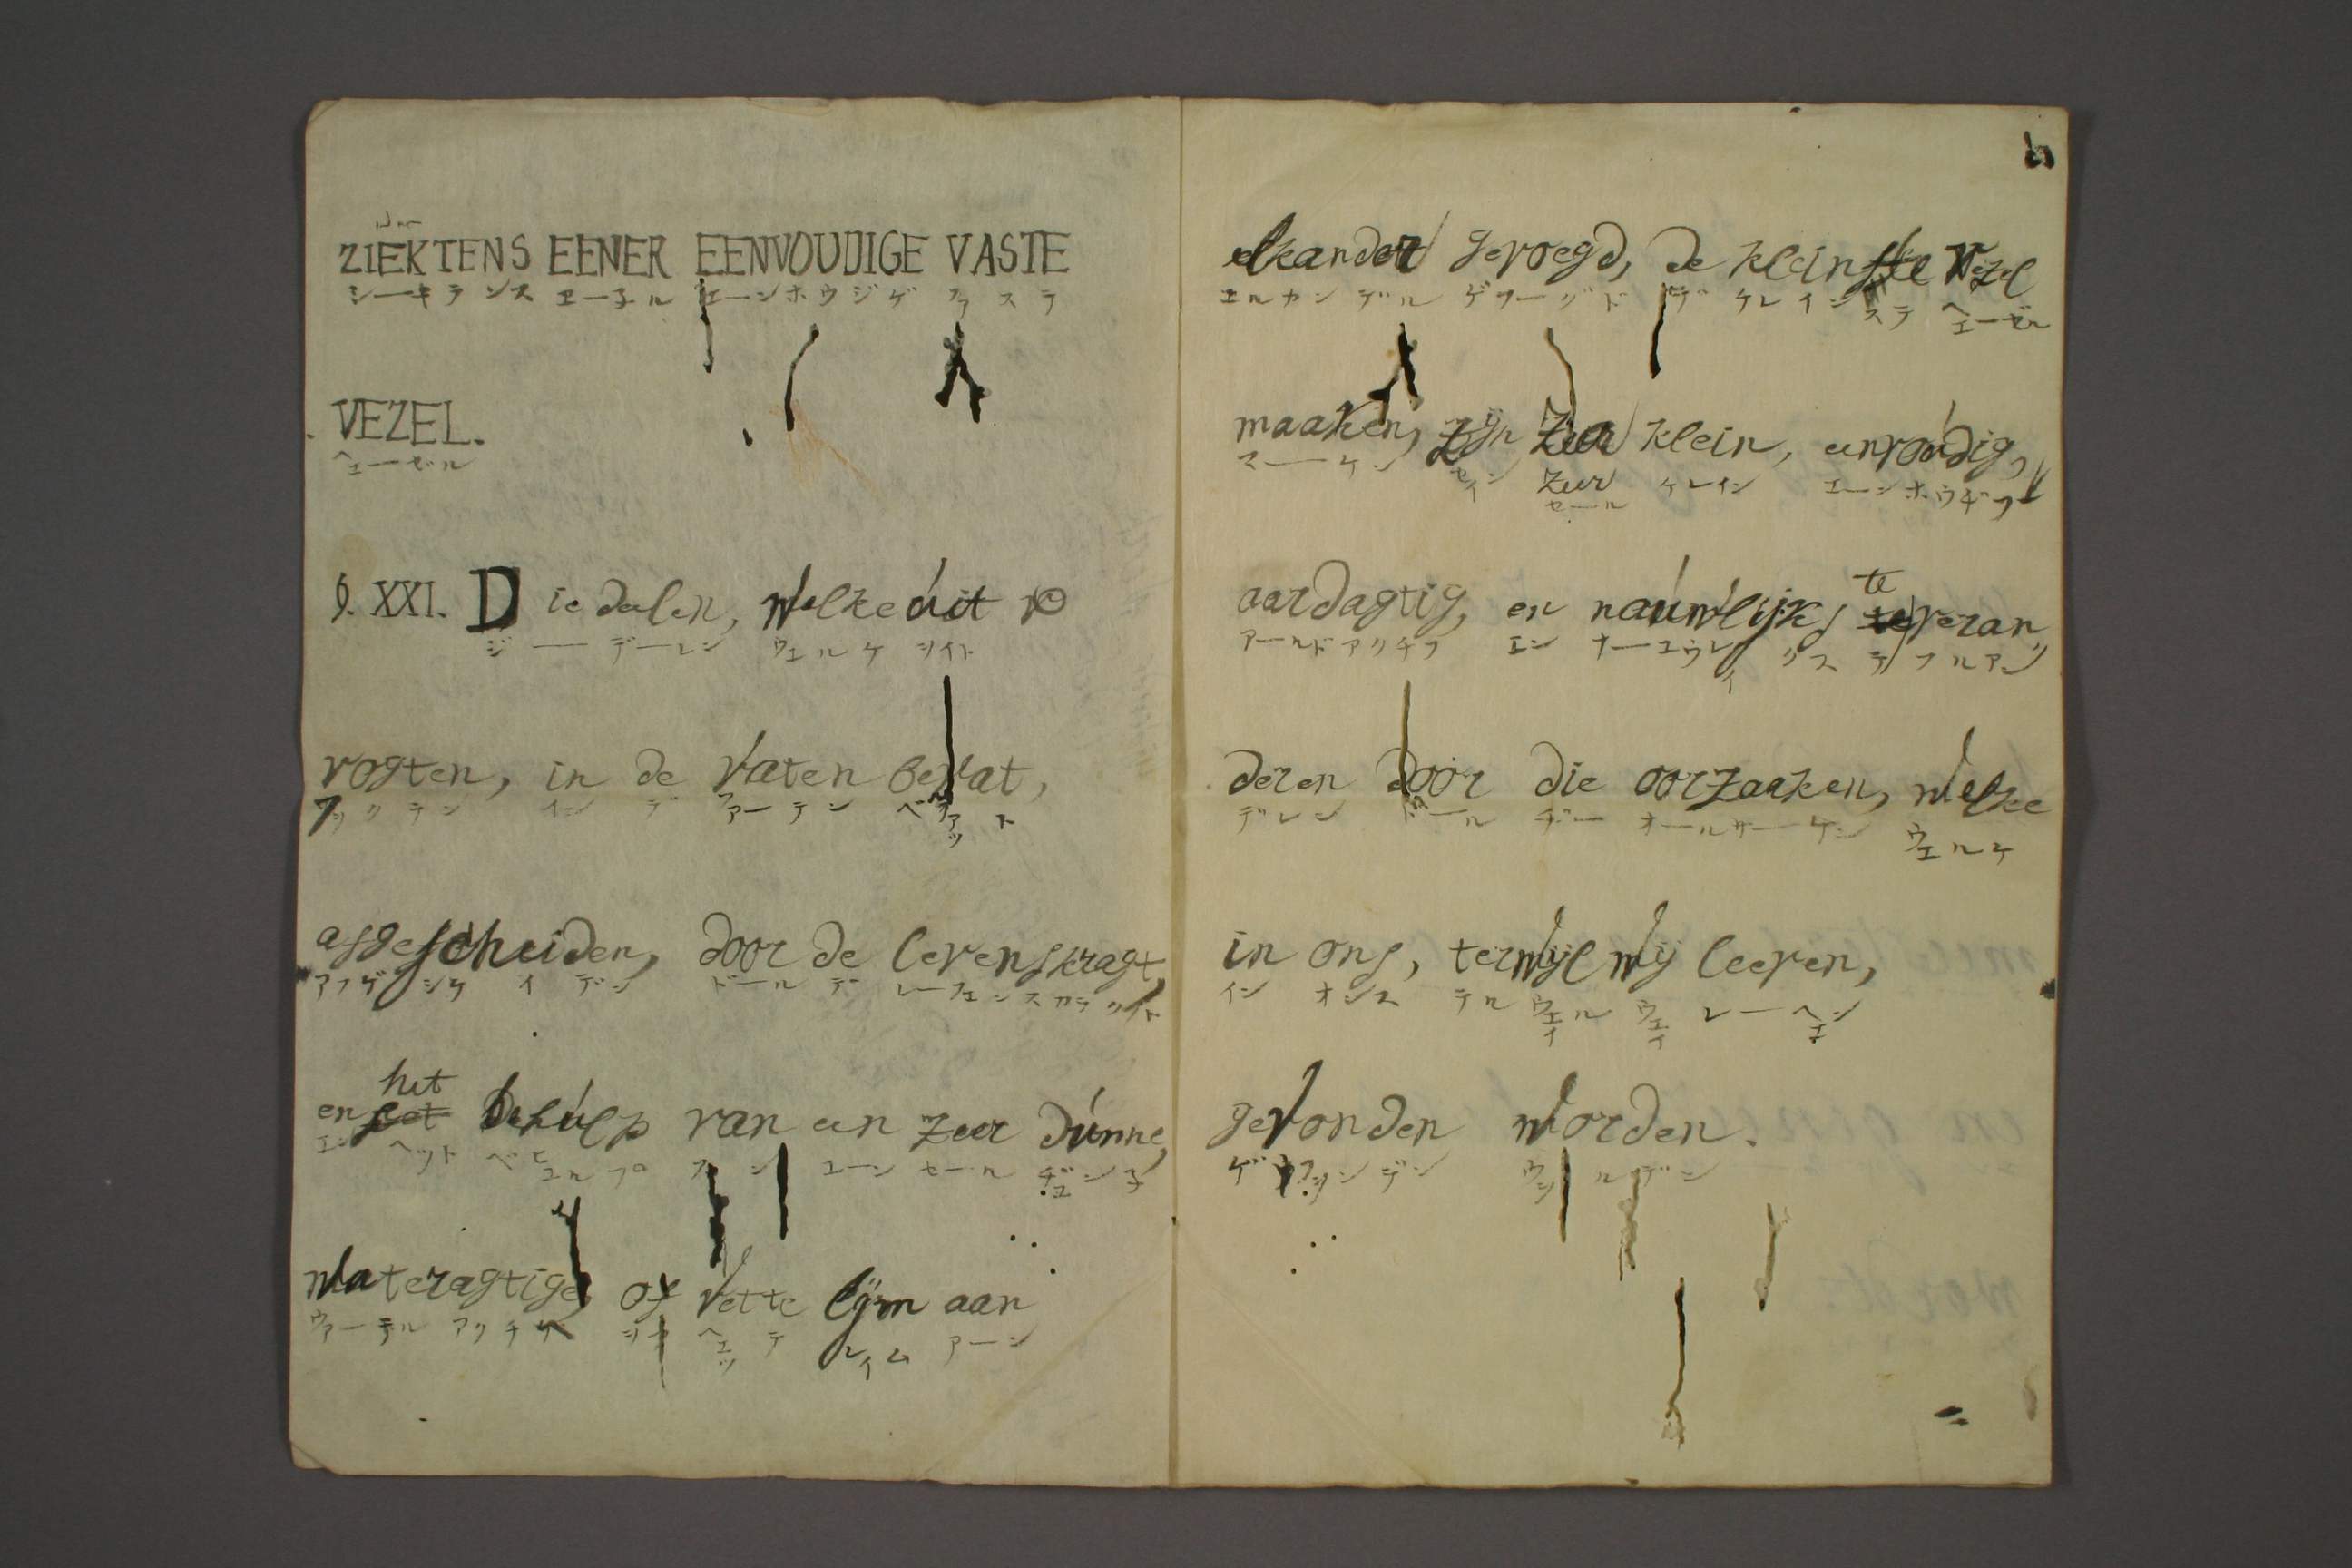 ZIEKTENS EENER EENVOUDIGE VASTE
シーキテンス エー子ル エーンホウジゲ ファステ
VEZEL.
ヘエーゼル
§. XXI. Die deelen, welke uit
ジーデーレン ウエルケ ヲイト
vogten, in de vaten bevat,
フヲクテン イン デ ファーテン ベファット
afgescheiden, door de levenskragt,
アフゲシケイデン ドール デ レーフエンスカラクト
en het behulp van een zeer dunne,
エン ヘット ベヒュルプ ファン エーン セール ヂュン子
het
wateragtige, of vette lijm aan
ウアーテルアクチゲ ヲフ ヘエッテ レイム アーン
elkander gevoegd, de kleinste vezel
エルカンデル ゲフーグド デ ケレインステ ヘエーゼル
maaken, zijn zeer klein, eenvoudig,
マーケン セイン zeer セール ケレイン エーンホウヂフ
te
aardagtig, en nauwlijks te veran
アールドアクチフ エン ナーユウレイクス テ フルアン
deren door die oorzaaken, welke
デレン ドール ヂー オールサーケン ウエルケ
in ons, terwijl wij leeven,
イン オンス テルウエイル ウエイ レーヘエン
gevonden worden.
ゲフヲンデン ヲルデン